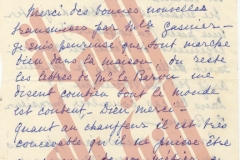 Merci des bonnes nouvelles
transmises par Mlle Garnier -
Je suis heureuse que tout marche
bien dans la maison, du reste
les lettres de Mr le Baron me
disent combien tout le monde
est content - Dieu merci -
Quant au chauffeur il est très
concevable qu'il ne puisse être